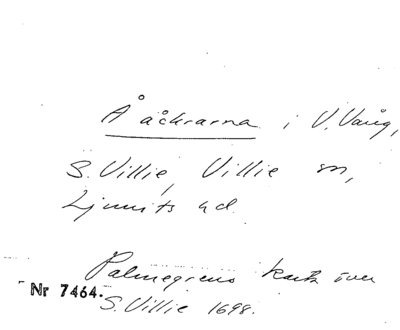 Å åckrarna i V. Vång,
S. Villie, Villie sn,
Ljunits hd.
Palmegrens karta över
Nr 7464.
S. Villie 1698.